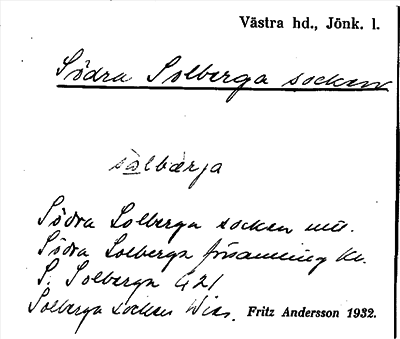 Västra hd., Jönk. l.
Södra Solberga socken
sålbærja
Södra Solberga socken
Södra Solberga församling kb.
S. Solberga G 21
Solberga socken Wies. Fritz Andersson 1932.